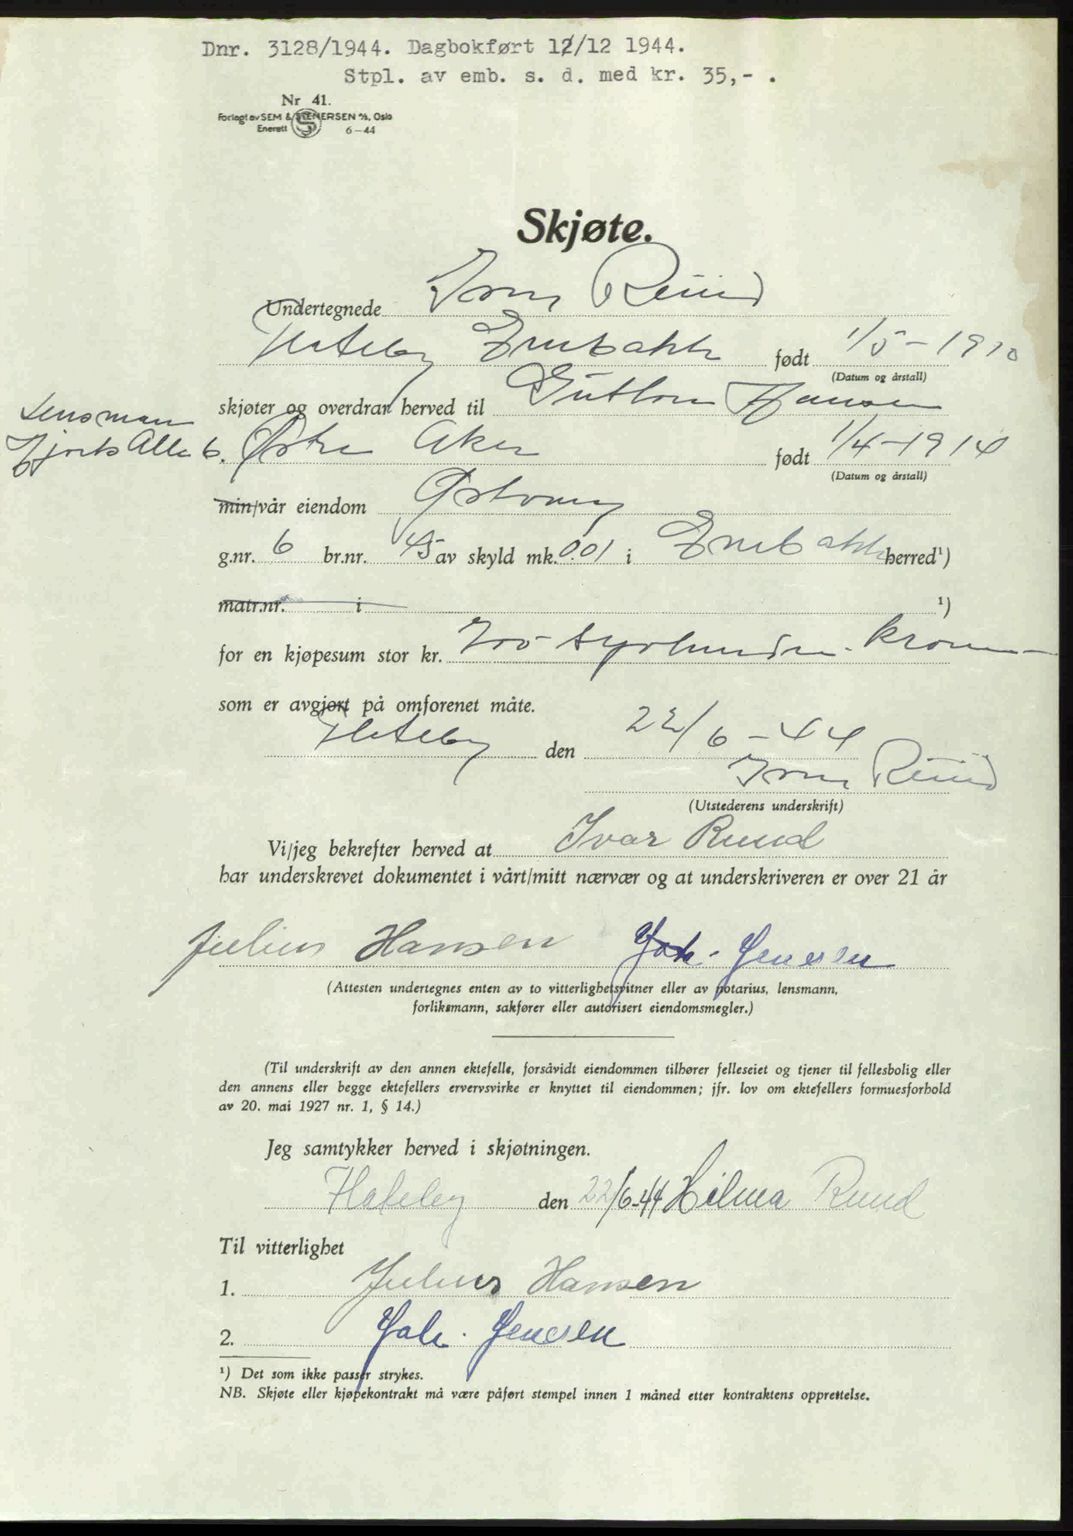 Dnr. 3128/1944. Dagbokført 12/12 1944.
Stpl. av emb. s. d. med kr. 35,- .
Nr 41.
Forlagt av SEM & STENERSEN A/S, Oslo
Enerett 6-44
Skjøte.
Undertegnede Ivar Ruud
Flateby Enebakk født 1/5-1910
(Datum og årstall)
skjøter og overdrar herved til Guttorm Hansen
Lensman
Hjorts Alle 6. Østre Aker født 1/4-1914
(Datum og årstall)
min/vår eiendom
g.nr. 6 br.nr. 45 av skyld mk. 0.01 i Enebakk herred¹)
matr.nr. i ¹)
for en kjøpesum stor kr. kroner
som er avgjort på omforenet måte.
Flateby den 22/6-44
Ivar Ruud
(Utstederens underskrift)
Vi/jeg bekrefter herved at Ivar Ruud
har underskrevet dokumentet i vårt/mitt nærvær og at underskriveren er over 21 år
Julius Hansen Joh. Jensen
(Attesten undertegnes enten av to vitterlighetsvitner eller av notarius, lensmann,
forliksmann, sakfører eller autorisert eiendomsmegler.)
(Til underskrift av den annen ektefelle, forsåvidt eiendommen tilhører felleseiet og tjener til fellesbolig eller
den annens eller begge ektefellers ervervsvirke er knyttet til eiendommen; jfr. lov om ektefellers formuesforhold
av 20. mai 1927 nr. 1, § 14.)
Jeg samtykker herved i skjøtningen.
Flateby den 22/6-44 Hilma Ruud
Til vitterlighet
1. Julius Hansen
2. Joh. Jensen
¹) Det som ikke passer strykes.
NB. Skjøte eller kjøpekontrakt må være påført stempel innen 1 måned etter kontraktens opprettelse.